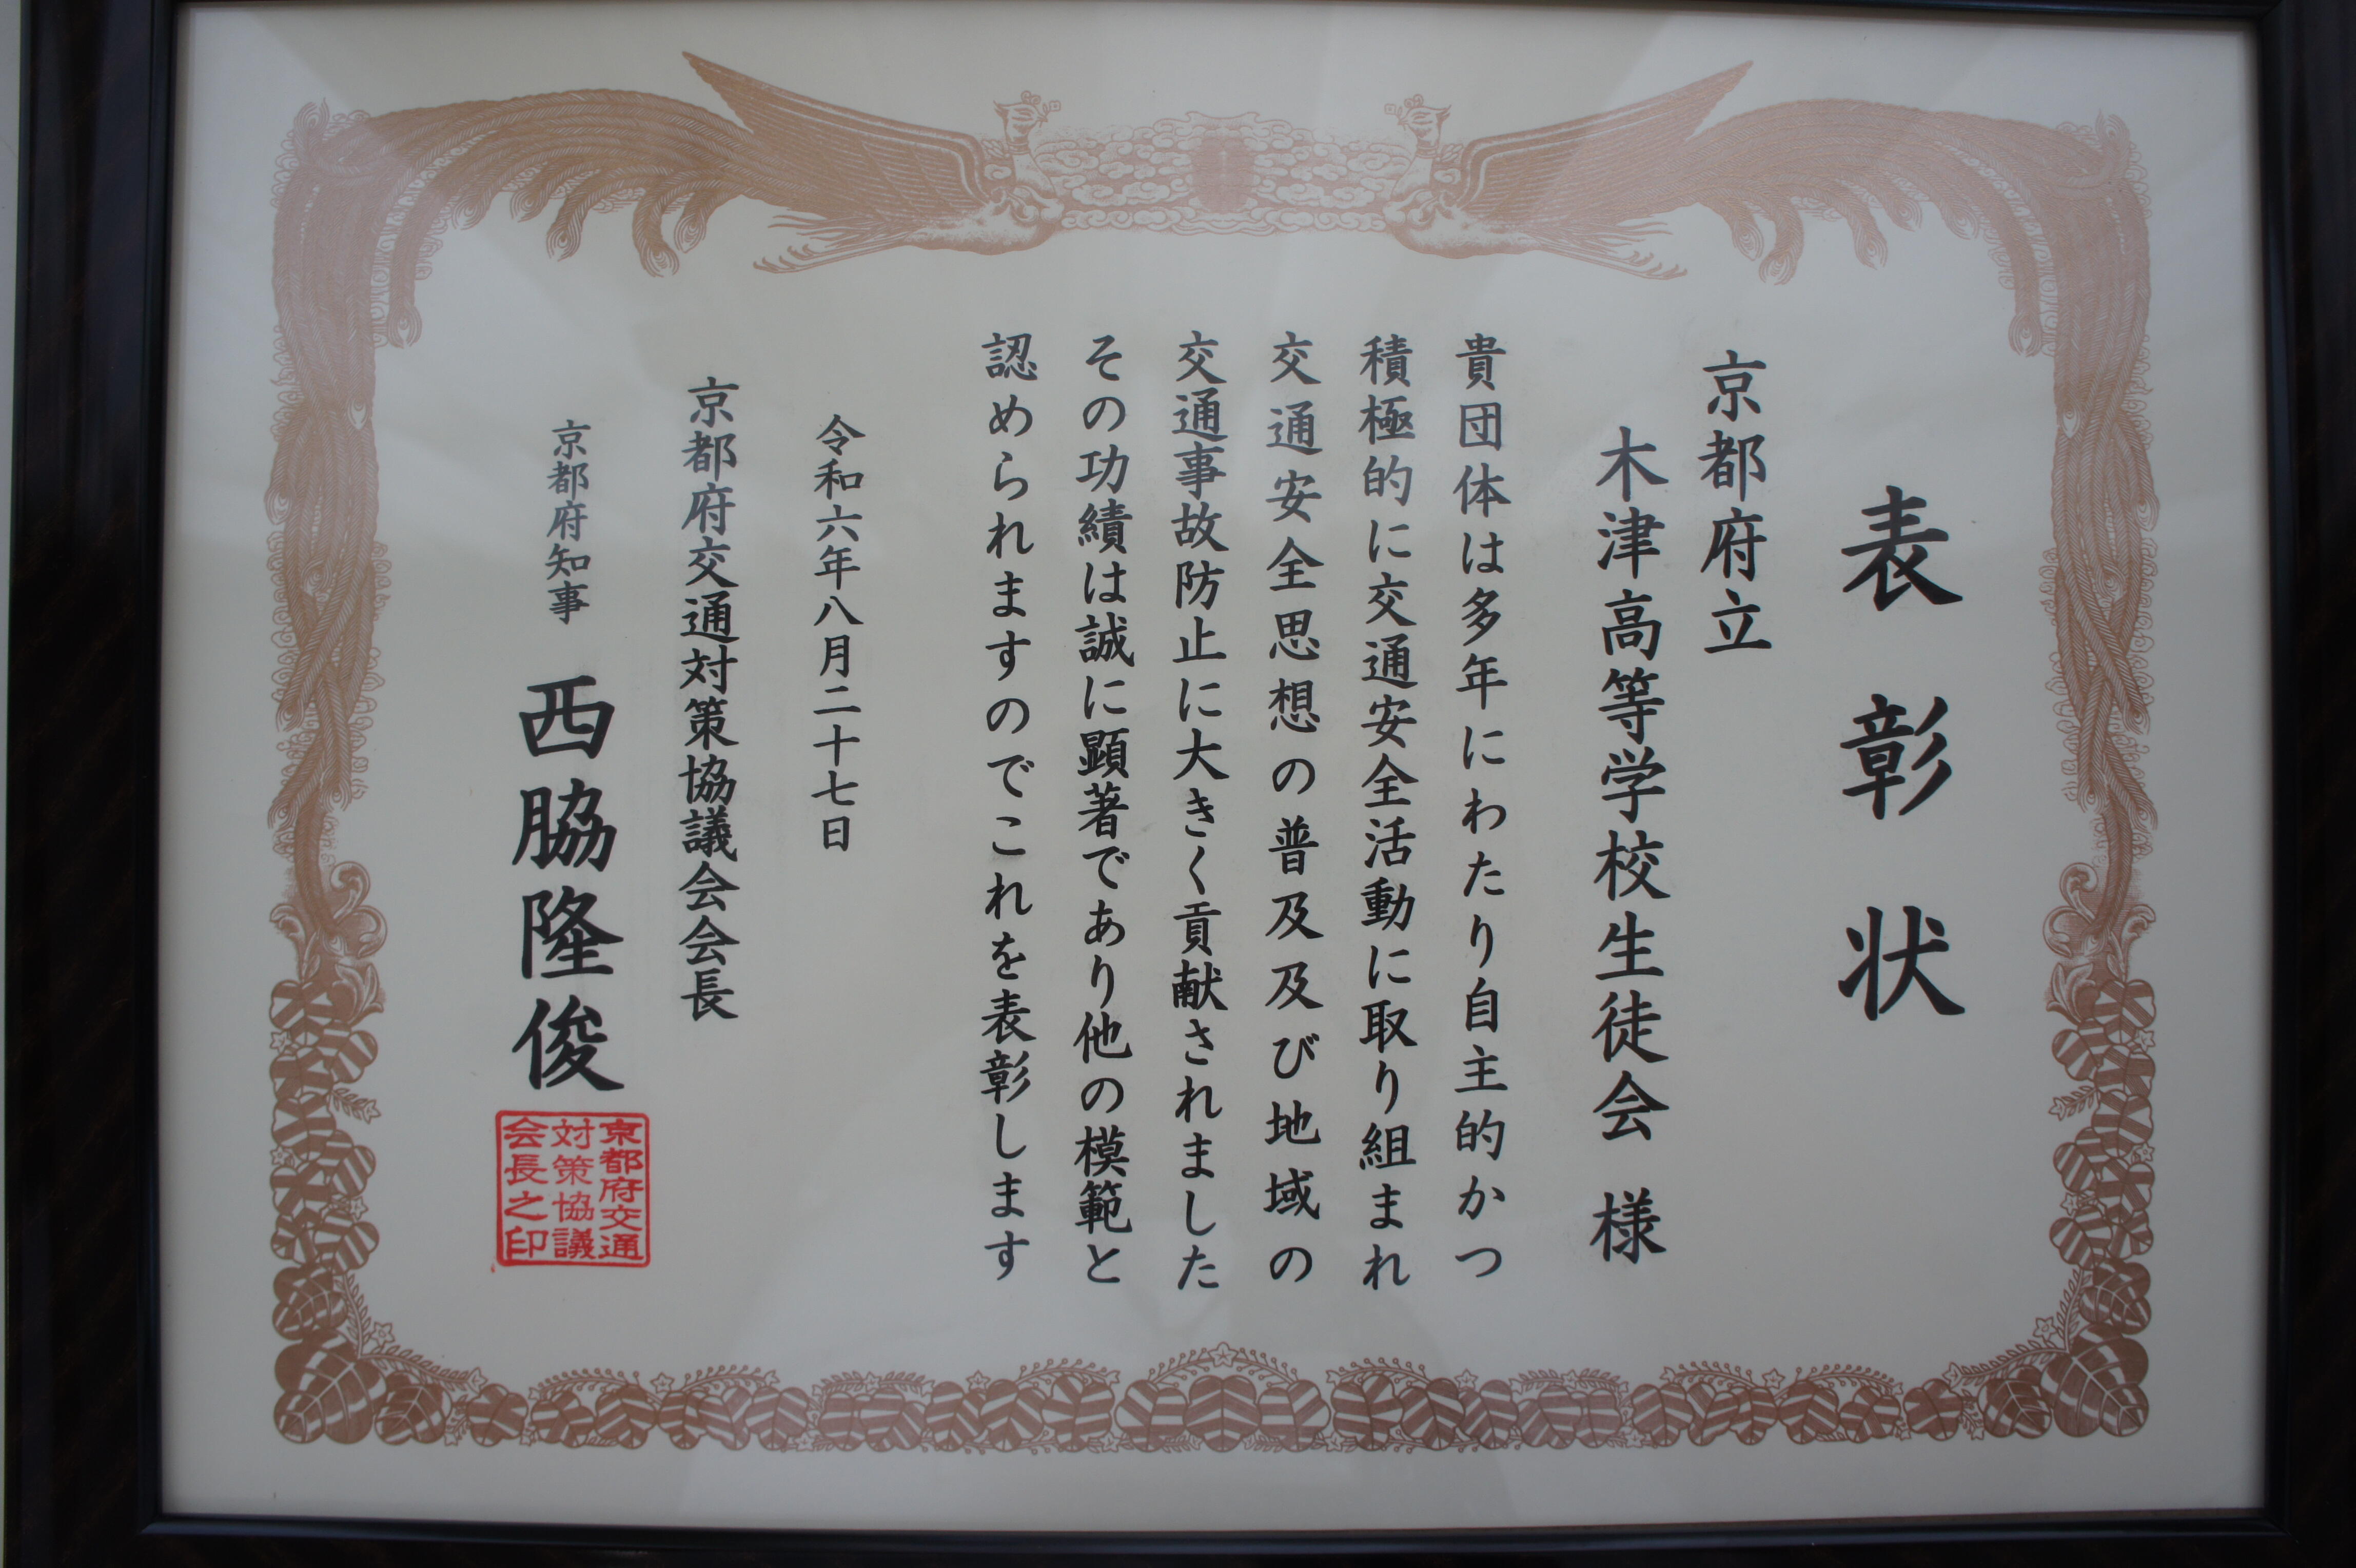 表彰状
京都府立
木津高等学校生徒会 様
貴団体は多年にわたり自主的かつ
積極的に交通安全活動に取り組まれ
交通安全思想の普及及び地域の
交通事故防止に大きく貢献されました
その功績は誠に顕著であり他の模範と
認められますのでこれを表彰します
令和六年八月二十七日
京都府交通対策協議会会長
京都府知事 西脇隆俊
京都府交通
対策協議
会長之印